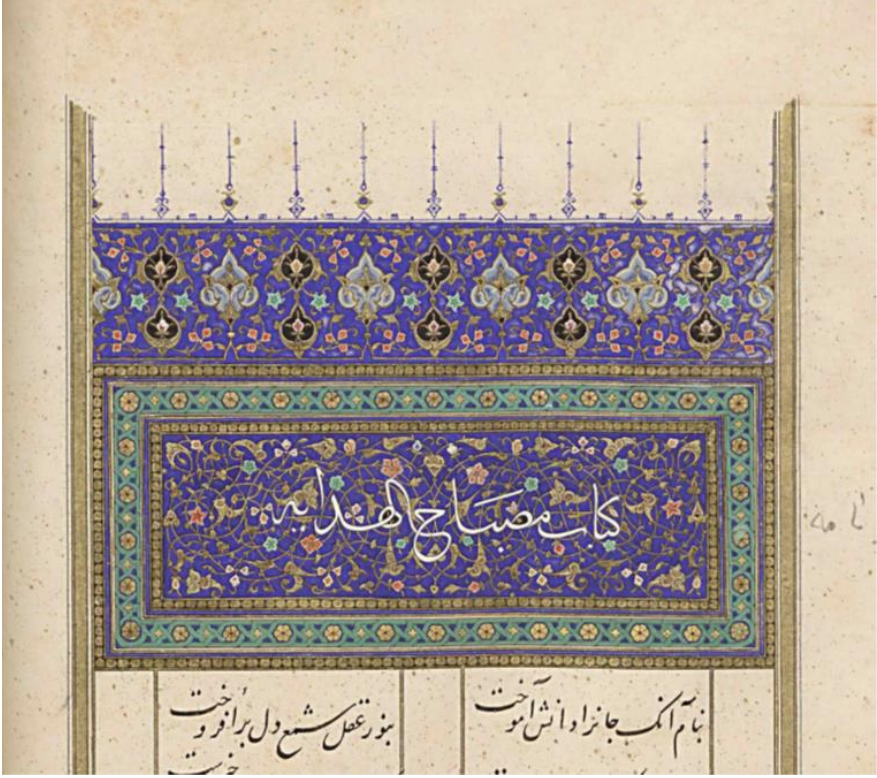 کتاب مصباح الهدایه
بنام آنک جانرا دانش آموخت
بنور عقل شمع دل برافروخت